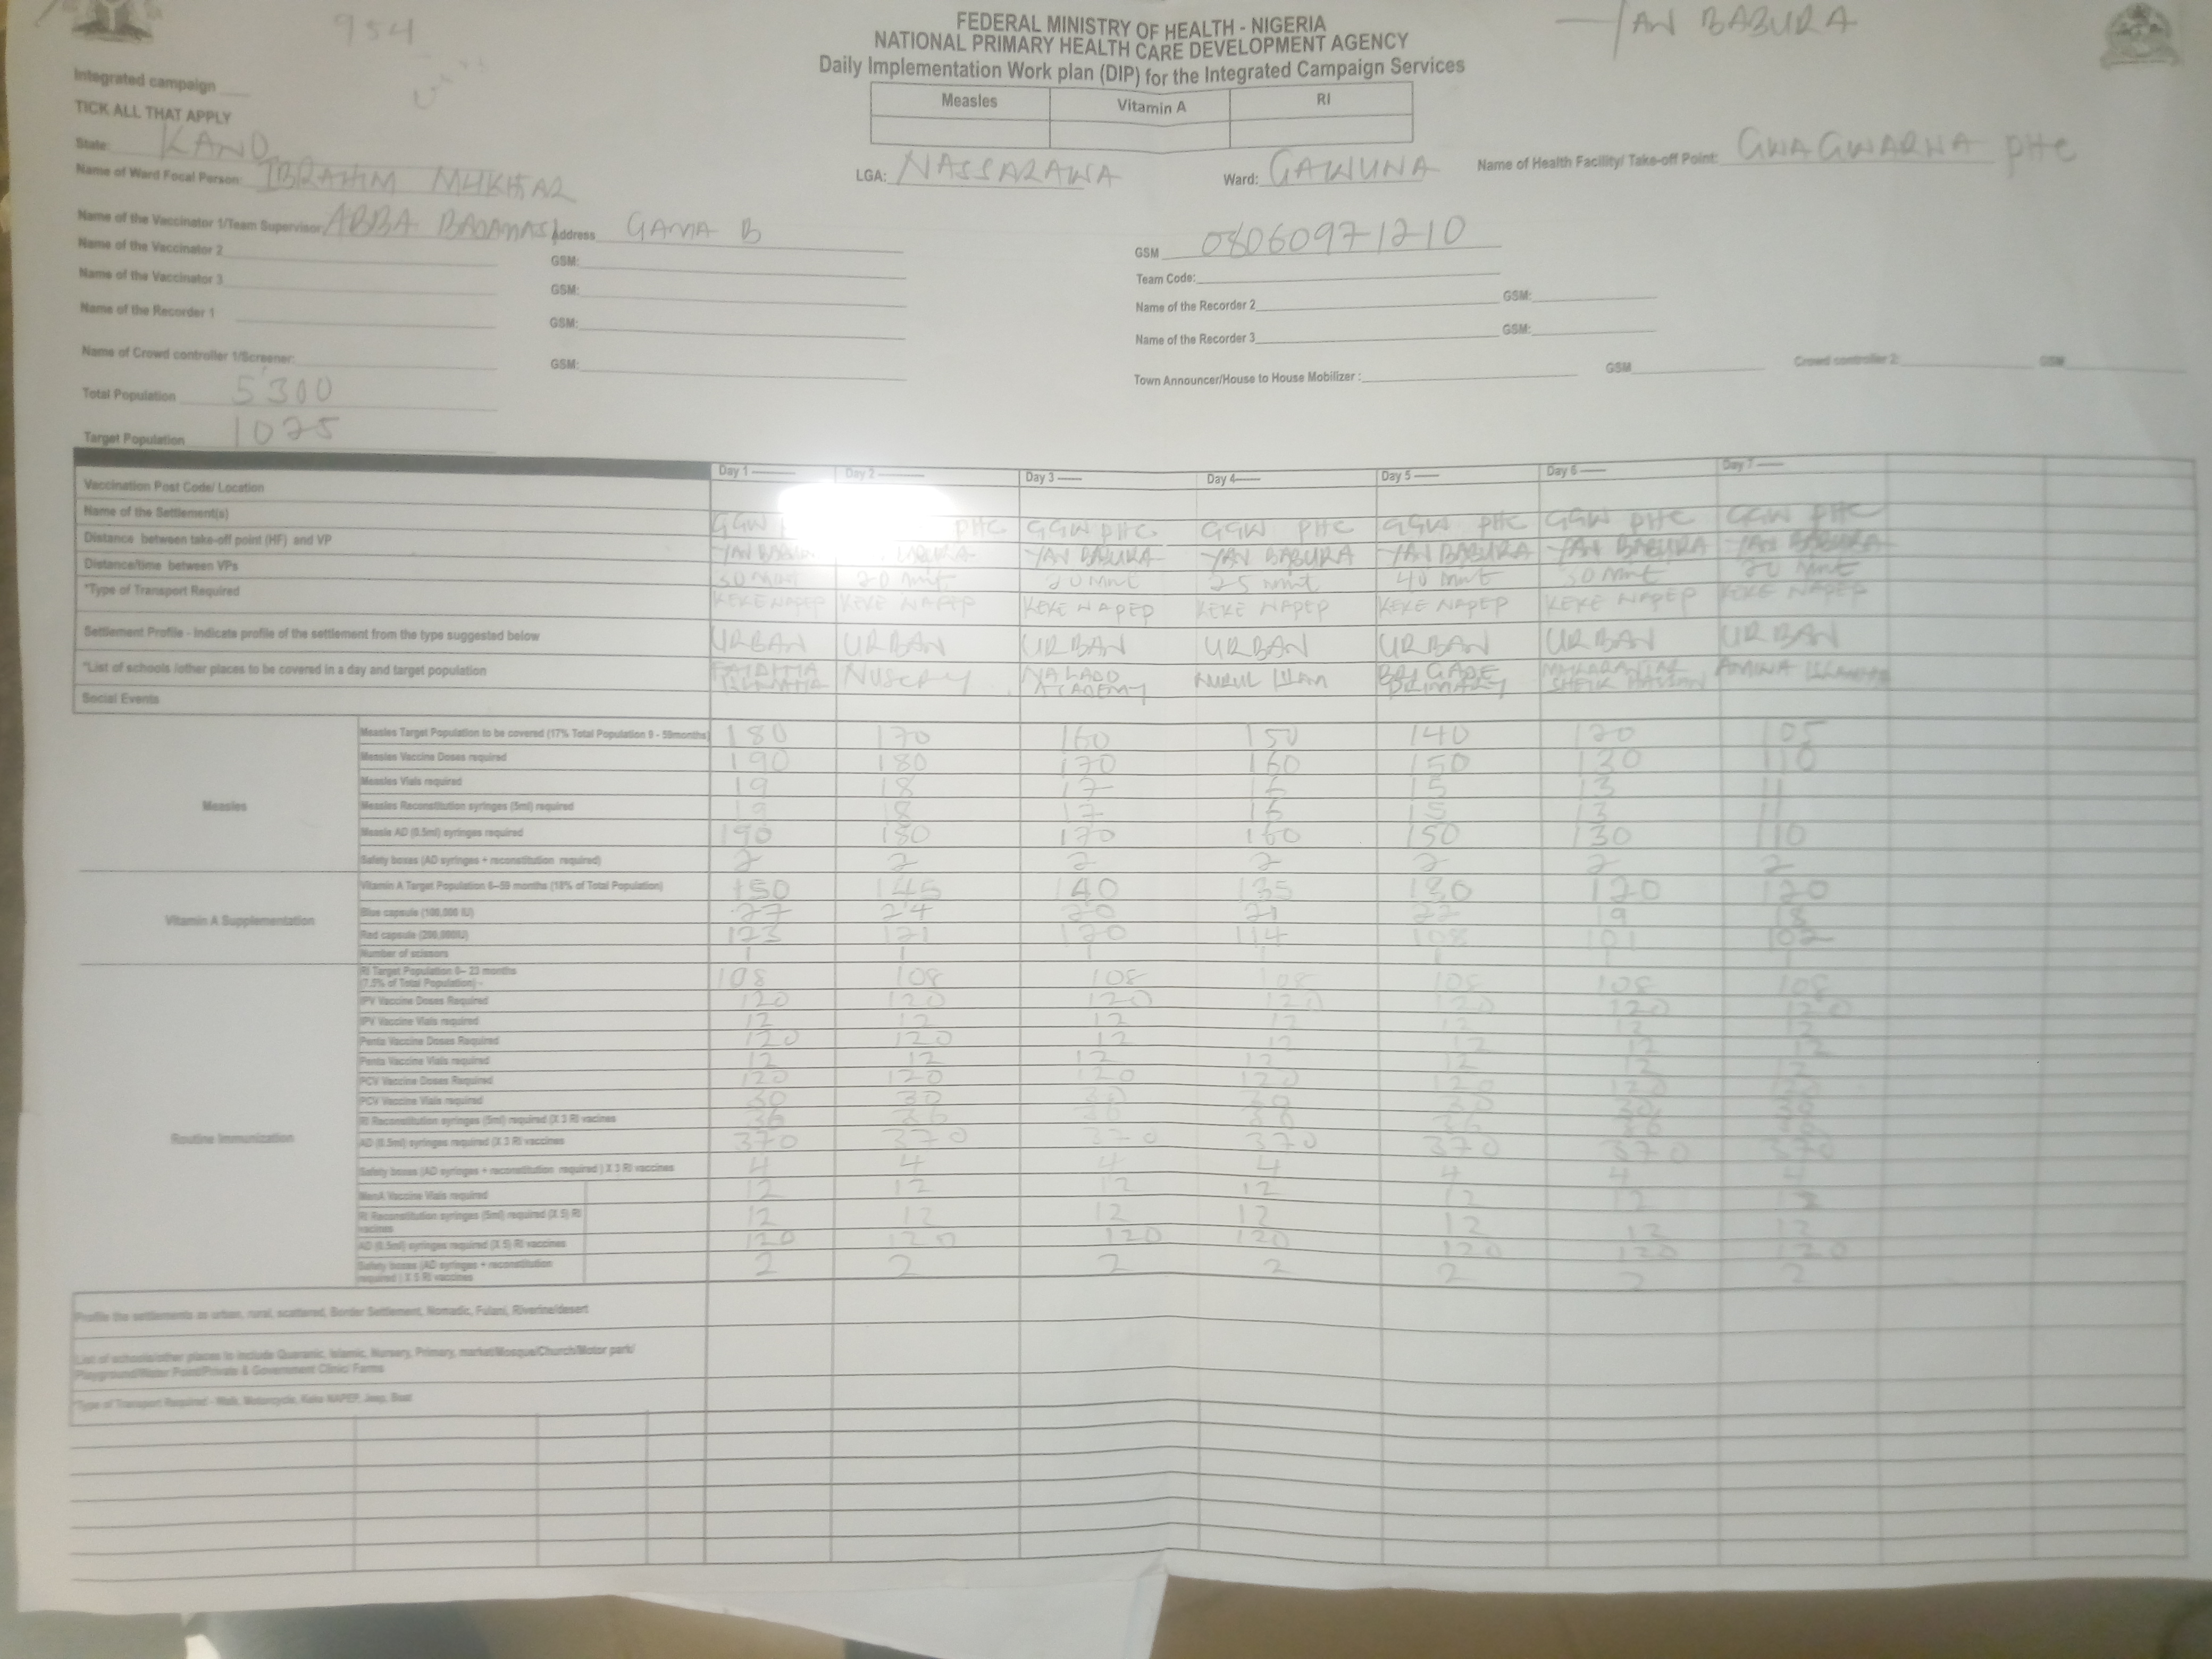 954
FEDERAL MINISTRY OF HEALTH - NIGERIA
NATIONAL PRIMARY HEALTH CARE DEVELOPMENT AGENCY
Daily Implementation Work plan (DIP) for the Integrated Campaign Services
YAN BABURA
Integrated campaign
TICK ALL THAT APPLY
Measles Vitamin A RI
State: KANO
Name of Ward Focal Person: IBRAHIM MUKHTAR
LGA: NASSARAWA Ward: GAWUNA Name of Health Facility/ Take-off Point: GWAGWARWA PHC
Name of the Vaccinator 1/Team Supervisor ABBA Address GAMA B GSM 08060971210
Name of the Vaccinator 2 GSM: Team Code:
Name of the Vaccinator 3 GSM: Name of the Recorder 2 GSM:
Name of the Recorder 1 GSM: Name of the Recorder 3 GSM:
Name of Crowd controller 1/Screener: GSM: Town Announcer/House to House Mobilizer : GSM Crowd controller 2: GSM
Total Population 5300
Target Population 1025
Day 1 Day 2 Day 3 Day 4 Day 5 Day 6 Day 7
Vaccination Post Code/ Location
Name of the Settlement(s) GGW PHC GGW PHC GGW PHC GGW PHC GGW PHC GGW PHC
Distance between take-off point (HF) and VP YAN YAN BABURA YAN BABURA YAN BABURA YAN BABURA YAN BABURA
Distance/time between VPs 30 20 mnt 20 mnt 25 mnt 40 mnt 30 mnt 20 mnt
*Type of Transport Required KEKE NAPEP KEKE NAPEP KEKE NAPEP KEKE NAPEP KEKE NAPEP KEKE NAPEP KEKE NAPEP
Settlement Profile - Indicate profile of the settlement from the type suggested below URBAN URBAN URBAN URBAN URBAN URBAN URBAN
*List of schools /other places to be covered in a day and target population ACADEMY NURUL BRIGADE PRIMARY AMINA
Social Events
Measles
Measles Target Population to be covered (17% Total Population 9 - 59months) 180 170 160 150 140 120 105
Measles Vaccine Doses required 190 180 170 160 150 130 110
Measles Vials required 19 18 17 16 15 13 11
Measles Reconstitution syringes (5ml) required 19 18 17 16 15 13 11
Measle AD (0.5ml) syringes required 190 180 170 160 150 130 110
Safety boxes (AD syringes + reconstitution required) 2 2 2 2 2 2 2
Vitamin A Supplementation
Vitamin A Target Population 6–59 months (18% of Total Population) 150 145 140 135 130 120 120
Blue capsule (100,000 IU) 27 24 20 21 22 19 18
Red capsule (200,000IU) 123 121 120 114 108 101 102
Number of scissors 1 1 1 1 1 1 1
Routine Immunization
RI Target Population 0– 23 months
(7.5% of Total Population) - 108 108 108 108 108 108 108
IPV Vaccine Doses Required 120 120 120 120 120 120 120
IPV Vaccine Vials required 12 12 12 12 12 12 12
Penta Vaccine Doses Required 120 120 12 12 12 12 12
Penta Vaccine Vials required 12 12 12 12 12 12 12
PCV Vaccine Doses Required 120 120 120 120 120 120 120
PCV Vaccine Vials required 30 30 30 30 30 30 30
RI Reconstitution syringes (5ml) required (X 3 RI vacines 36 36 36 36 36 36 36
AD (0.5ml) syringes required (X 3 RI vaccines 370 370 370 370 370 370 370
Safety boxes (AD syringes + reconstitution required ) X 3 RI vaccines 4 4 4 4 4 4 4
MenA Vaccine Vials required 12 12 12 12 12 12 12
RI Reconstitution syringes (5ml) required (X 5) RI
vacines 12 12 12 12 12 12 12
AD (0.5ml) syringes required (X 5) RI vaccines 120 120 120 120 120 120 120
Safety boxes (AD syringes + reconstitution
required ) X 5 RI vaccines 2 2 2 2 2 2 2
Profile the settlements as urban, rural, scattered, Border Settlement, Nomadic, Fulani, Riverine/desert
List of schools/other places to include Quaranic, Islamic, Nursery, Primary, market/Mosque/Church/Motor park/
Playground/Water Point/Private & Government Clinic/ Farms
*Type of Transport Required - Walk, Motorcycle, Keke NAPEP, Jeep, Boat